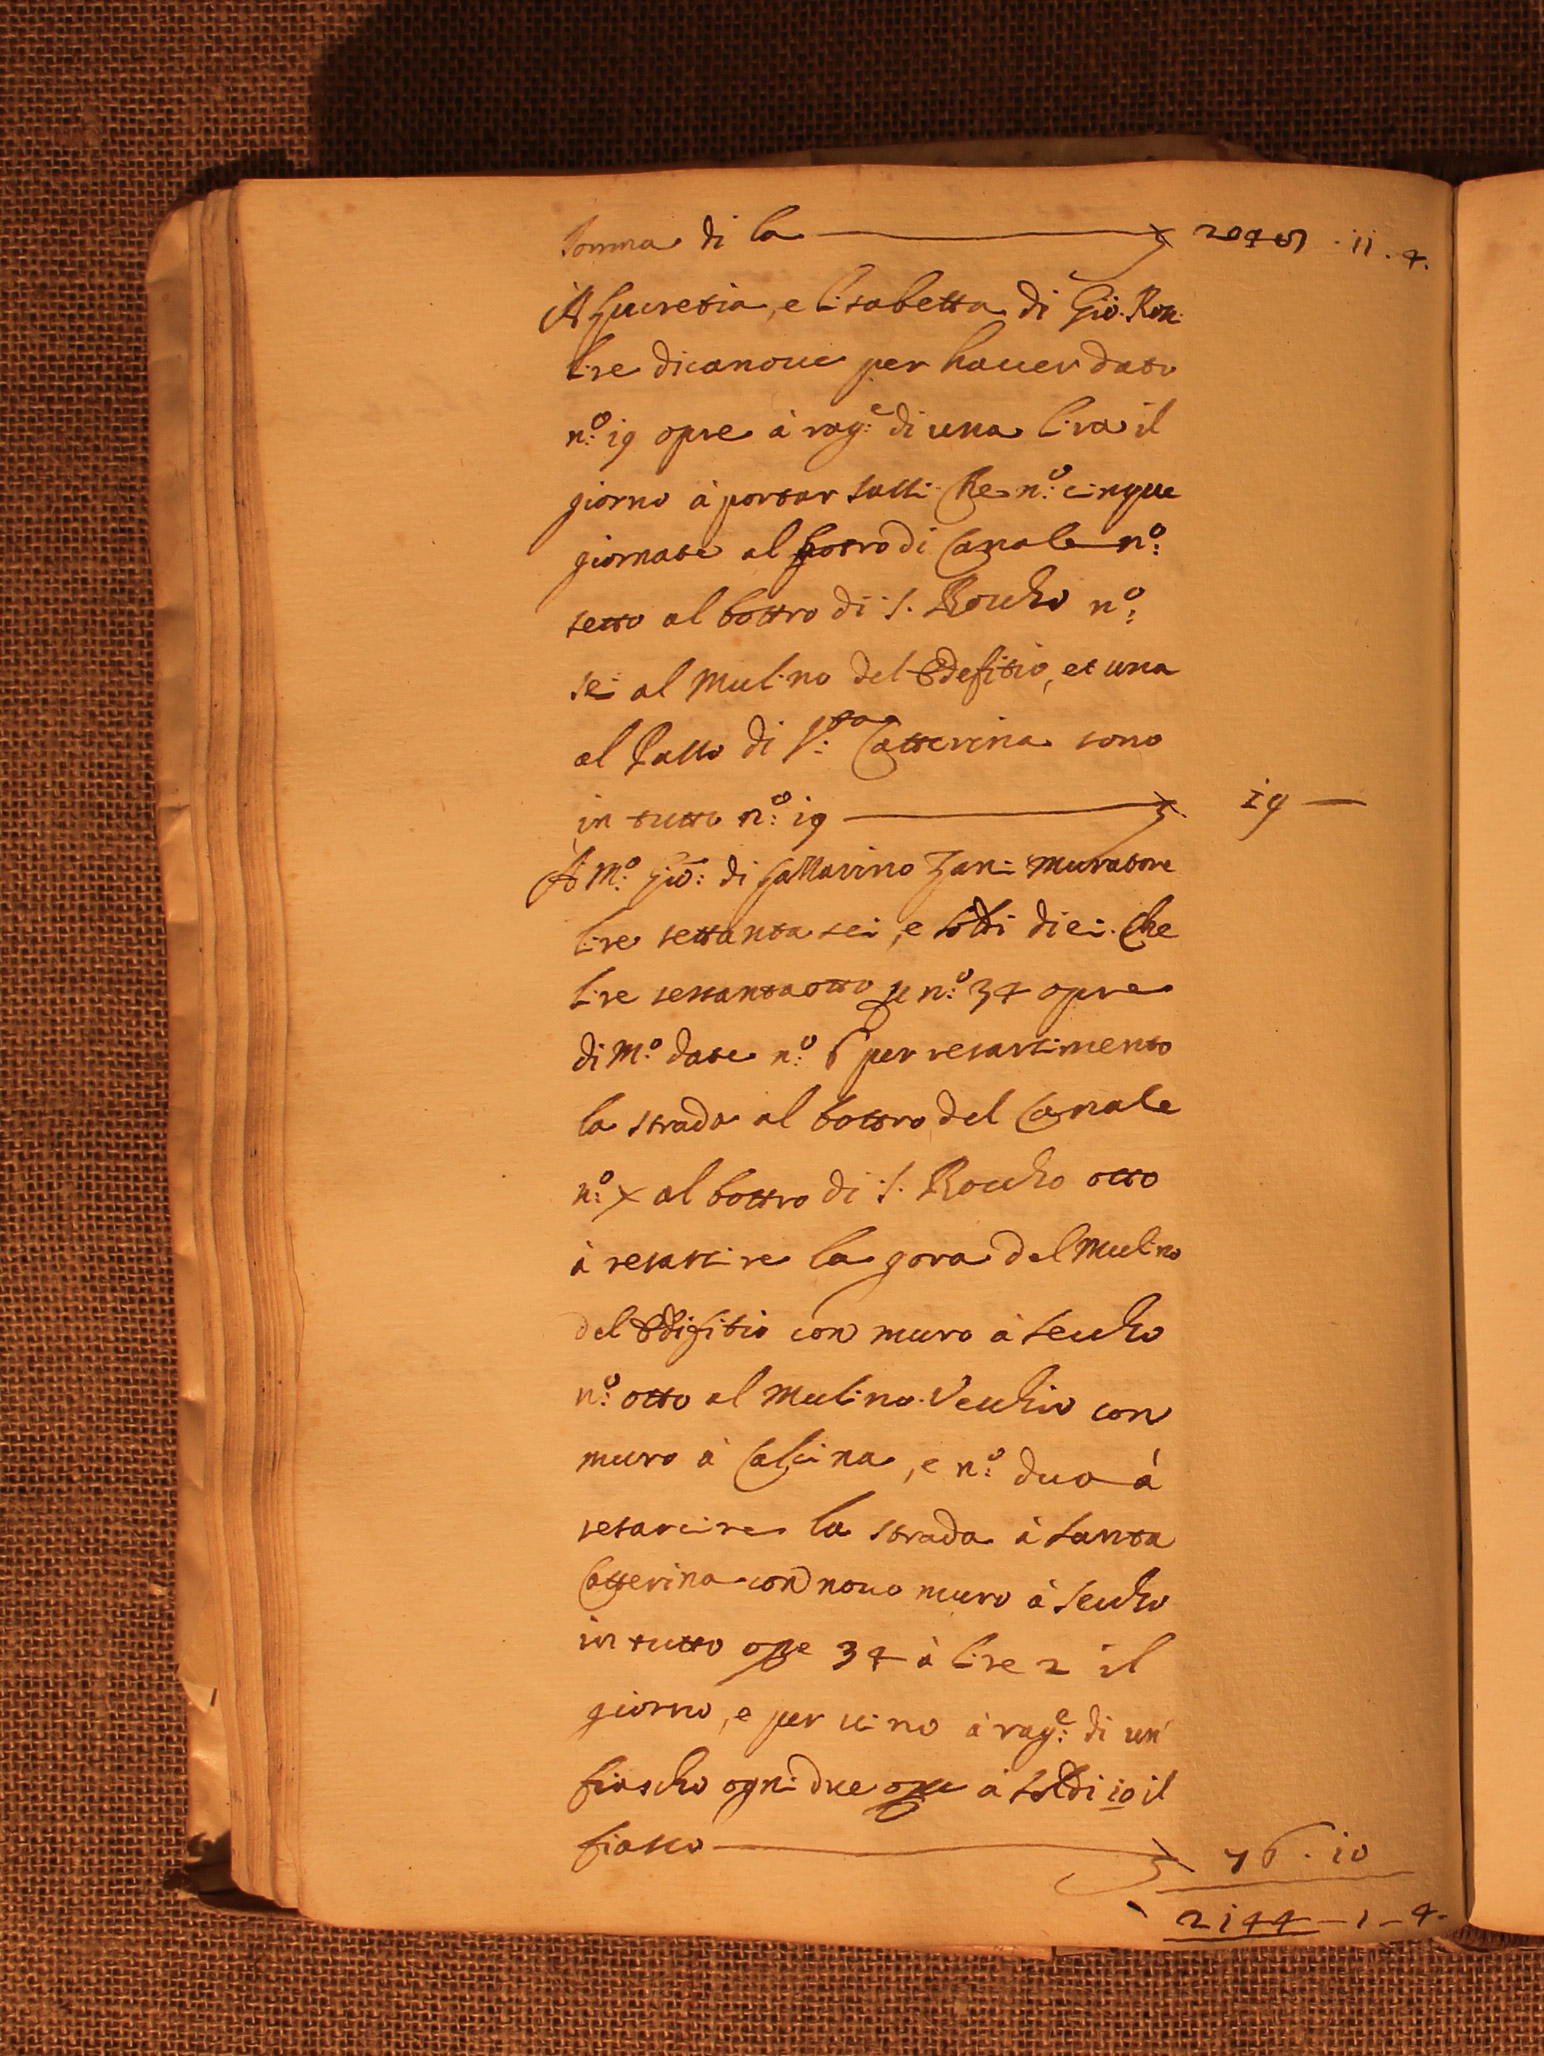 Somma di la 2048 . 11 . 4.
A Lucretia, e Lisabetta di Gio. Ron.
lire dicanove per haver dato
n.º 19 opre à rag.e di una lira il
giorno à portar sassi che n.º cinque
giornate al bottro di Canale n.º
setto al bottro di S. Roccho n.º
sei al Mulino del Edefitio, et una
al Passo di S.ta Catterina sono
in tutto n.º 19 19 —
A M.º Gio: di Gallavino Zani muratore
lire settanta sei, e soldi dieci. Che
lire sessantaotto p n.º 34 opre
di M.º date n.º 6 per resarcimento
la strada al bottro del Canale
n.º x al bottro di S. Roccho otto
à resarcire la gora del Mulino
del Edifitio con muro à seccho
n.º otto al Mulino Vecchio con
muro à Calcina, e n.º duo à
resarcire la strada à santa
Catterina con novo muro à seccho
in tutto opre 34 à lire 2 il
giorno, e per vino à rag.e di un
fiascho ogni due opre à soldi 10 il
fiasco 76 . 10
2144 – 1 – 4.